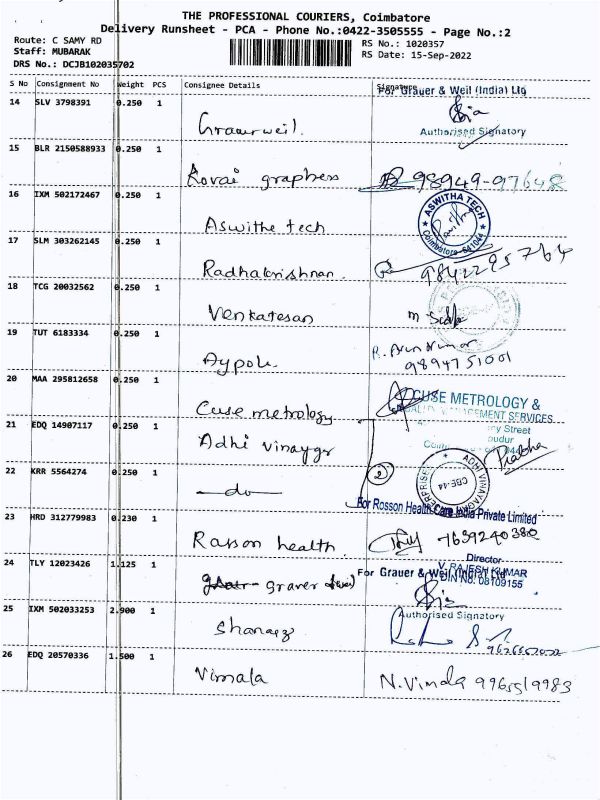 THE PROFESSIONAL COURIERS, Coimbatore
Delivery Runsheet - PCA - Phone No.:0422-3505555 - Page No.:2
Route: C SAMY RD
RS No.: 1020357
Staff: MUBARAK
RS Date: 15-Sep-2022
DRS No.: DCJB102035702
S No Consignment No Weight PCS Consignee Details Signature
For Grauer & Weil (India) Ltd
14 SLV 3798391 0.250 1
Grauerweil.
Authorised Signatory
15 BLR 2150588933 0.250 1
Kovai graphess 98949-97648
16 IXM 502172467 0.250 1
Aswithe tech
ASWITHA TECH
Coimbatore-641044
17 SLM 303262145 0.250 1
Radhakrishnan. 9842295764
18 TCG 20032562 0.250 1
Venkatesan
19 TUT 6183334 0.250 1
Aypole. R. Arunkumar
9894751001
20 MAA 295812658 0.250 1
Cuse metrology
CUSE METROLOGY &
MANAGEMENT SERVICES
Street
21 EDQ 14907117 0.250 1
Adhi vinaygr
Prabha
22 KRR 5564274 0.250 1
do 2
ADHI VINAYAGA
ENTERPRISES
CBE-44
For Rosson Health Care India Private Limited
23 HRD 312779983 0.230 1
Rasson health. 7639240380
Director
V. RAJESH KUMAR
DIN NO: 08109155
24 TLY 12023426 1.125 1
For Grauer & Weil (India) Ltd
graver
Authorised Signatory
25 IXM 502033253 2.900 1
26 EDQ 20570336 1.500 1
Vimala N. Vimala 9965519983